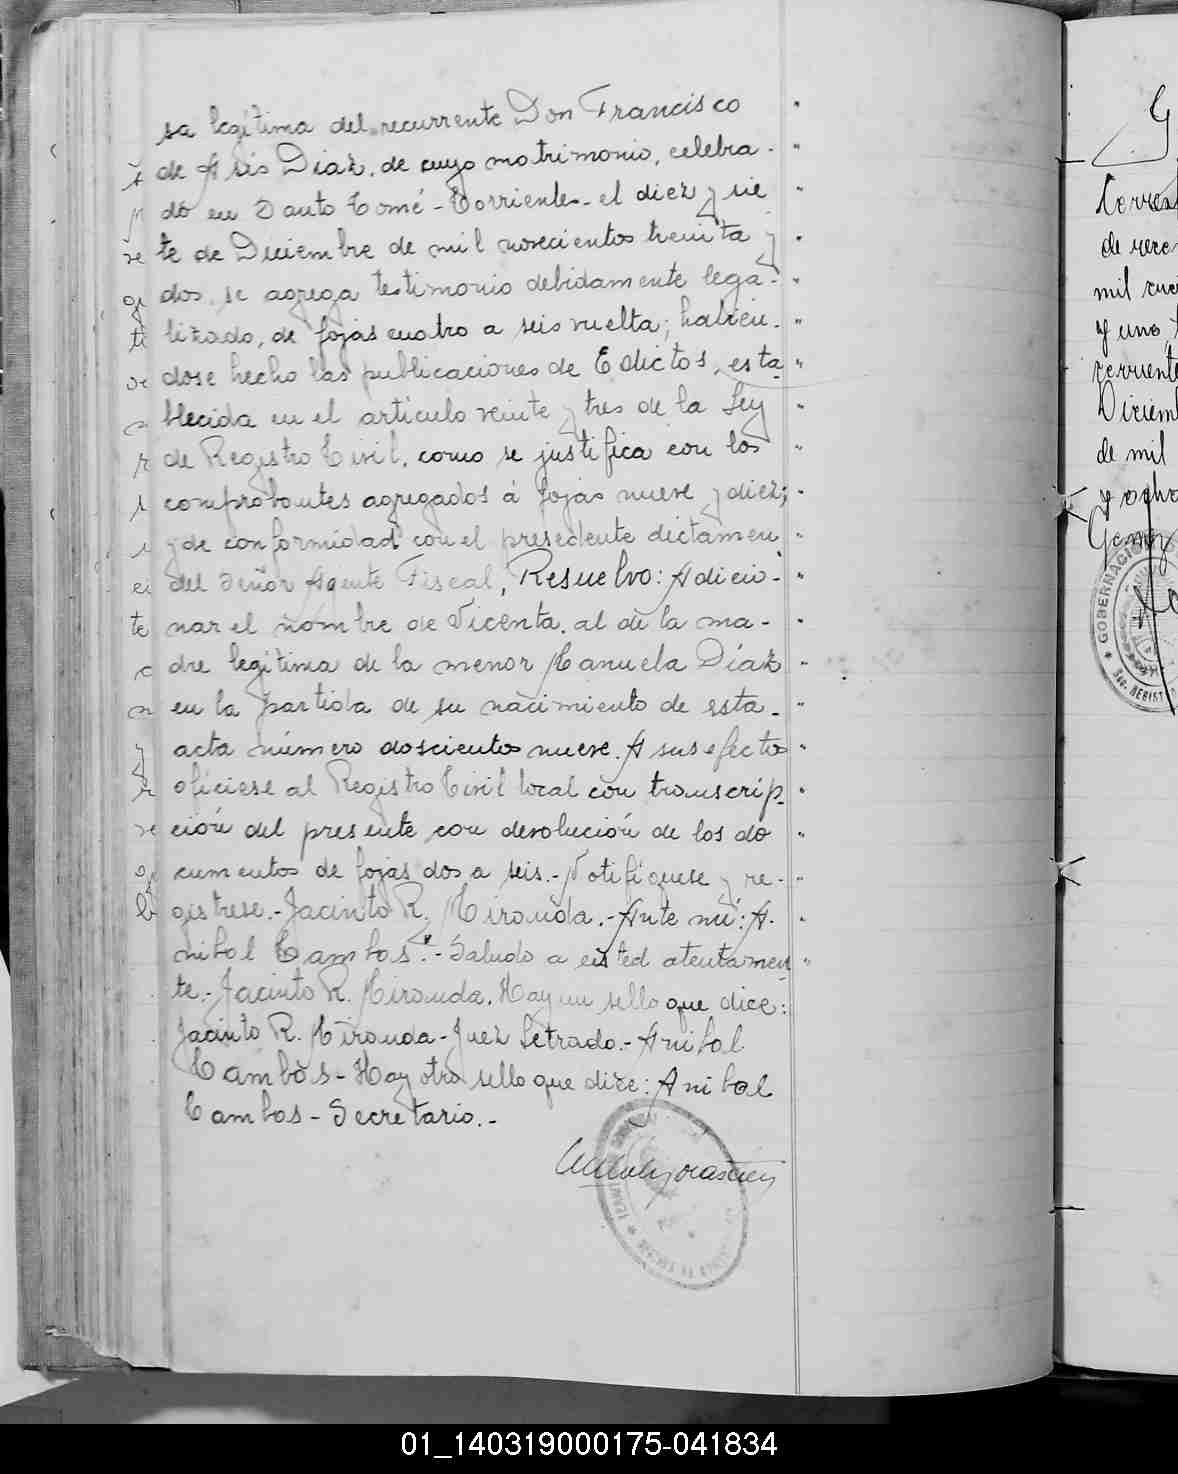 sa legítima del recurrente Don Francisco
de Asis Diaz, de cuyo matrimonio, celebra-
do en Santo Tomé - Corrientes - el diez y sie
te de Diciembre de mil novecientos treinta y
dos, se agrega testimonio debidamente lega-
lizado, de fojas cuatro a seis vuelta; habien-
dose hecho las publicaciones de Edictos, esta
blecida en el articulo veinte y tres de la Ley
de Registro Civil, como se justifica con los
comprobantes agregados á fojas nueve y diez;
y de conformidad con el presedente dictamen
del Señor Agente Fiscal, Resuelvo: Adicio-
nar el nombre de Vicenta, al de la ma-
dre legítima de la menor Manuela Díaz
en la partida de su nacimiento de esta
acta número doscientos nueve. A sus efectos
ofíciese al Registro Civil local con transcrip-
ción del presente con devolución de los do
cumentos de fojas dos a seis.- Notifíquese y re-
gistrese.- Jacinto R. Miranda.- Ante mi: A-
nibal Cambas.- Saludo a usted atentamen
te.- Jacinto R. Miranda. Hay un sello que dice:
Jacinto R. Miranda - Juez Letrado.- Anibal
Cambas - Hay otro sello que dice: Anibal
Cambas - Secretario.-
G
de
mil
y uno
Diciem
de mil
y ocho
GOBERNACION
01_140319000175-041834